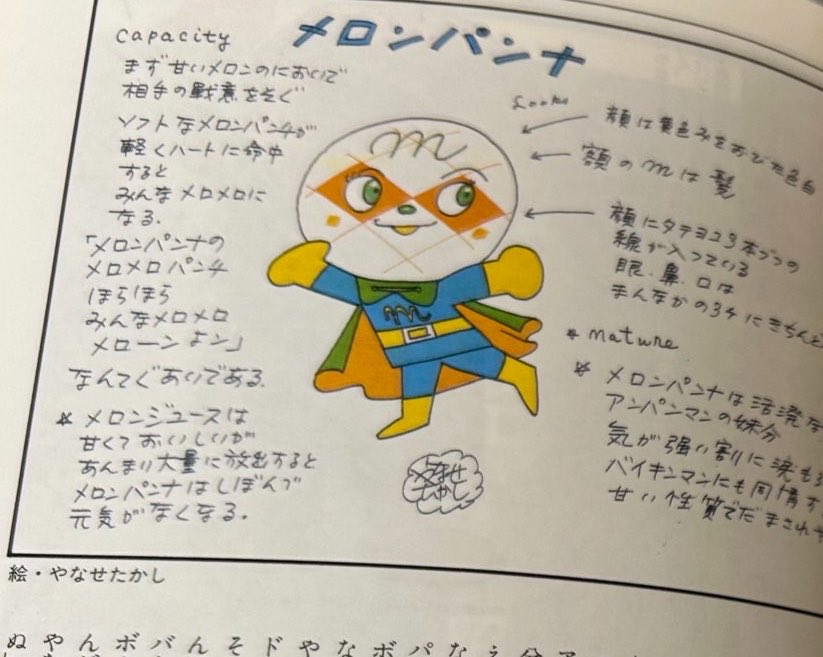 メロンパンナ
capacity
まず甘いメロンのにおいで
相手の戦意をそぐ
ソフトなメロンパンチが
軽くハートに命中
すると
みんなメロメロに
なる.
「メロンパンナの
メロメロパンチ
ほらほら
みんなメロメロ
メローンよン」
なんてぐあいである.
* メロンジュースは
甘くておいしいが
あんまり大量に放出すると
メロンパンナはしぼんで
元気がなくなる.
Looks
顔は黄色みをおびた色白
額のmは髪
顔にタテヨコ3本づつの
線が入っている
眼.鼻.口は
まんなかの3ケにきちんと
m
m
* nature
* メロンパンナは活溌な
アンパンマンの妹分
気が強い割に涙も
バイキンマンにも同情す
甘い性質でだまされや
やなせ
たかし
絵・やなせたかし
ぬやんボバんそドやなボパなえ分ア